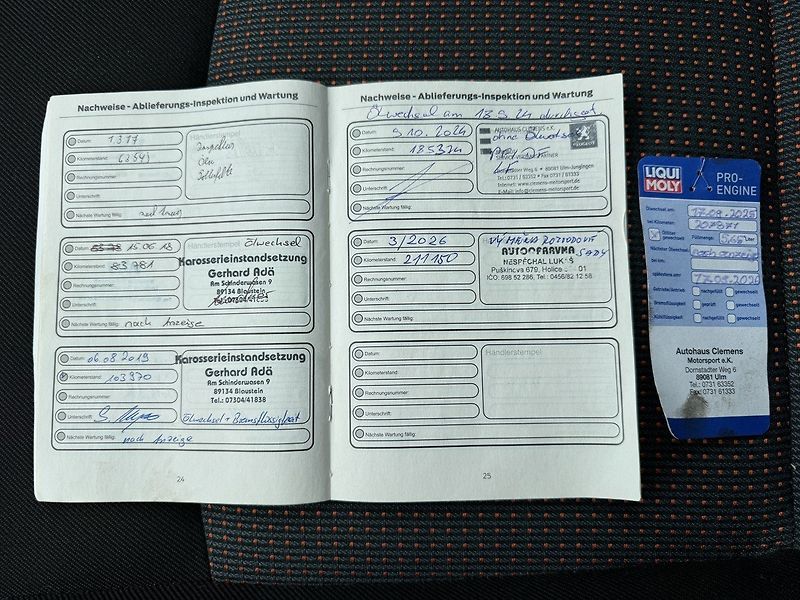 Nachweise - Ablieferungs-Inspektion und Wartung
Datum: 1.3.17
Händlerstempel
Kilometerstand:
Inspektion
Öl
Rechnungsnummer:
Unterschrift:
Nächste Wartung fällig:
Datum: 15.06.18
Händlerstempel Ölwechsel
Kilometerstand: 83781
Karosserieinstandsetzung
Gerhard Adä
Rechnungsnummer:
Am Schinderwasen 9
89134 Blaustein
Unterschrift:
Nächste Wartung fällig: nach Anzeige
Datum: 06.08.2019
Kilometerstand: 103970
Karosserieinstandsetzung
Gerhard Adä
Rechnungsnummer:
Am Schinderwasen 9
89134 Blaustein
Tel.: 07304/41838
Unterschrift:
Ölwechsel + Bremsflüssigkeit
Nächste Wartung fällig: nach Anzeige
24
Nachweise - Ablieferungs-Inspektion und Wartung
Ölwechsel am 18.9.24 durchgef.
Datum: 9.10.2024
AUTOHAUS CLEMENS e.K.
ohne Ölwechsel
Kilometerstand: 185374
PEUGEOT
Rechnungsnummer:
Dornstadter Weg 6 • 89081 Ulm-Jungingen
Tel.: 0731 / 63352 • Fax 0731 / 61333
Unterschrift:
Internet: www.clemens-motorsport.de
Nächste Wartung fällig:
Datum: 3/2026
VÝMĚNA ROZVODOVÉ
SADY
Kilometerstand: 211150
AUTOOPRAVNA
NESPĚCHAL LUKÁŠ
Rechnungsnummer:
Puškinova 679, Holice 01
IČO: 698 52 286, Tel.: 0456/82 12 58
Unterschrift:
Nächste Wartung fällig:
Datum:
Händlerstempel
Kilometerstand:
Rechnungsnummer:
Unterschrift:
Nächste Wartung fällig:
25
LIQUI
MOLY
PRO-
ENGINE
Ölwechsel am: 17.09.2025
bei Kilometer: 207871
Ölfilter
gewechselt
Füllmenge: Liter
Nächster Ölwechsel
bei km:
spätestens am: 17.09.2026
Getriebe/Antrieb: nachgefüllt gewechselt
Bremsflüssigkeit: geprüft gewechselt
Kühlflüssigkeit: nachgefüllt gewechselt
Autohaus Clemens
Motorsport e.K.
Dornstadter Weg 6
89081 Ulm
Tel.: 0731 63352
Fax: 0731 61333